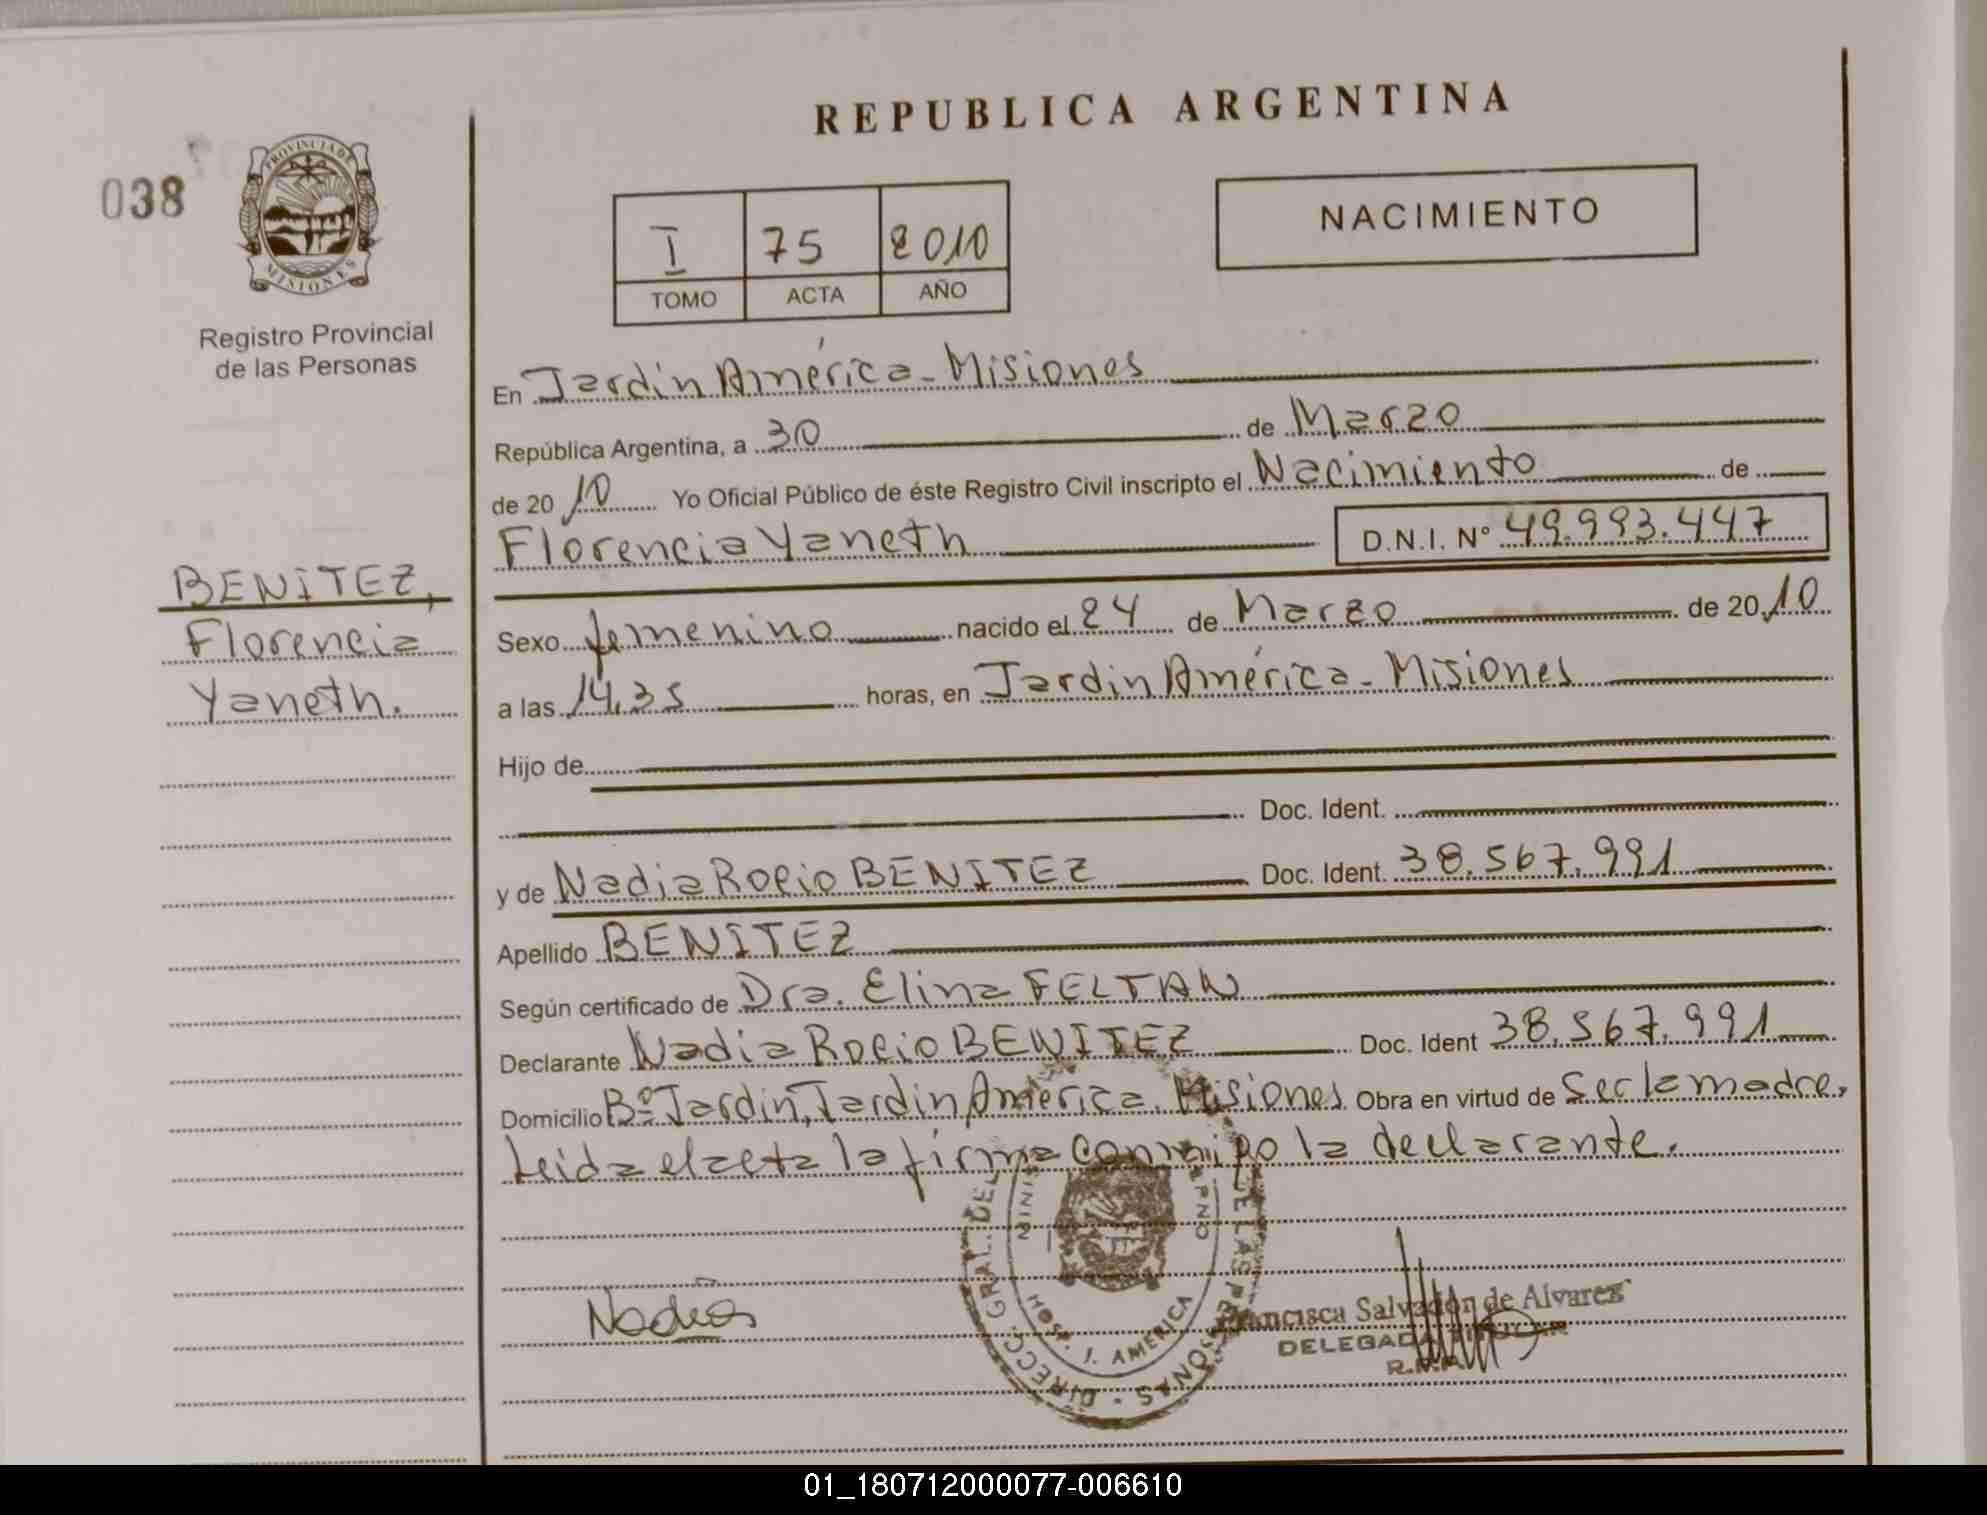 REPUBLICA ARGENTINA
038
PROVINCIA DE
MISIONES
Registro Provincial
de las Personas
I 75 2010
TOMO ACTA AÑO
NACIMIENTO
En Jardín América - Misiones
República Argentina, a 30 de Marzo
de 20 10 Yo Oficial Público de éste Registro Civil inscripto el Nacimiento de
Florencia Yaneth D.N.I. Nº 49.993.447
BENITEZ,
Florencia
Yaneth.
Sexo femenino nacido el 24 de Marzo de 20 10
a las 14,35 horas, en Jardin América - Misiones
Hijo de
Doc. Ident.
y de Nadia Rocio BENITEZ Doc. Ident. 38.567.991
Apellido BENITEZ
Según certificado de Dra. Elina FELTAN
Declarante Nadia Rocio BENITEZ Doc. Ident 38.567.991
Domicilio Bº Jardin, Jardin América. Misiones Obra en virtud de Ser la madre,
Leida el acta la firma conmigo la declarante.
DIRECC. GRAL. DEL DE LAS PERSONAS
HOSP. J. AMERICA
Nadia
Francisca Salvadón de Alvarez
DELEGADA TITULAR
R.P.P.
01_180712000077-006610